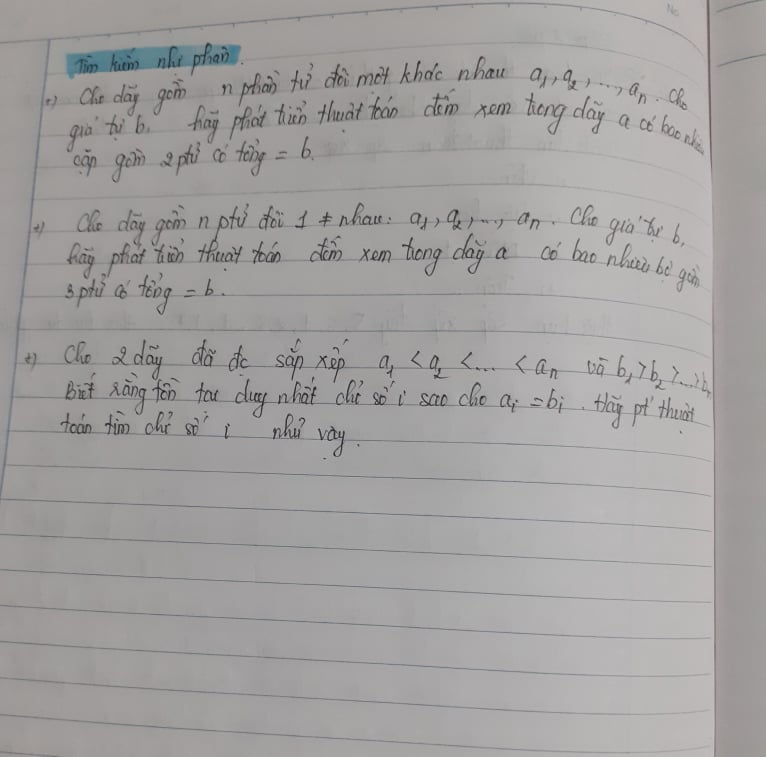 No
Tìm kiếm nhị phân.
+) Cho dãy gồm n phần tử đôi một khác nhau a1, a2, ..., an. Cho
giá trị b, hãy phát triển thuật toán đếm xem trong dãy a có bao nhiêu
cặp gồm 2 ptử có tổng = b.
+) Cho dãy gồm n ptử đôi 1 ≠ nhau: a1, a2, ..., an. Cho giá trị b,
hãy phát triển thuật toán đếm xem trong dãy a có bao nhiêu bộ gồm
3 ptử có tổng = b.
+) Cho 2 dãy đã đc sắp xếp a1 < a2 < ... < an và b1 > b2 > ... > bn
Biết rằng tồn tại duy nhất chỉ số i sao cho ai = bi. Hãy pt thuật
toán tìm chỉ số i như vậy.